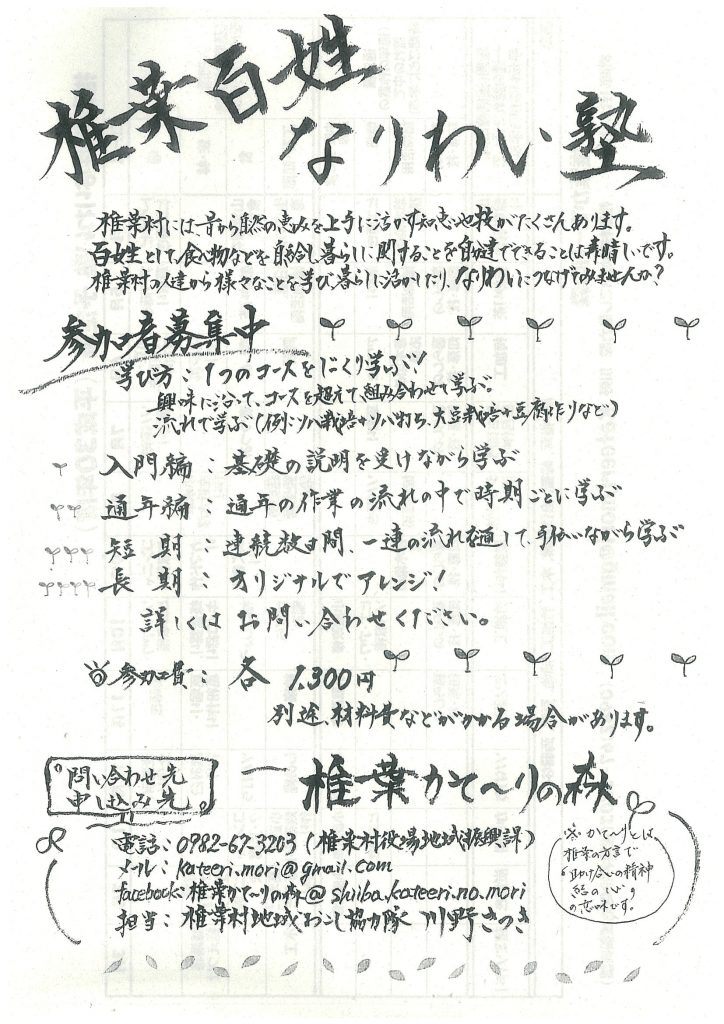 椎葉百姓
なりわい塾
椎葉村には昔から自然の恵みを上手に活かす知恵や技がたくさんあります。
百姓として、食べ物などを自給し暮らしに関することを自分達でできることは素晴しいです。
椎葉村の人達から様々なことを学び、暮らしに活かしたり、なりわいにつなげてみませんか?
参加者募集中
学び方：1つのコースをじっくり学ぶ!
興味に沿って、コースを超えて、組み合わせて学ぶ。
流れで学ぶ(例：ソバ栽培+ソバ打ち、大豆栽培+豆腐作りなど)
入門編：基礎の説明を受けながら学ぶ
通年編：通年の作業の流れの中で時期ごとに学ぶ
短期：連続数日間、一連の流れを通して、手伝いながら学ぶ
長期：オリジナルでアレンジ!
詳しくはお問い合わせください。
参加費：各 1,300円
別途、材料費などがかかる場合があります。
問い合わせ先
申し込み先
椎葉かて〜りの森
電話：0982-67-3203(椎葉村役場地域振興課)
メール：kateeri.mori@gmail.com
facebook：椎葉かて〜りの森@shiiba.kateeri.no.mori
担当：椎葉村地域おこし協力隊 川野さつき
※かて〜りとは、
椎葉の方言で
"助け合いの精神
結の心"
の意味です。